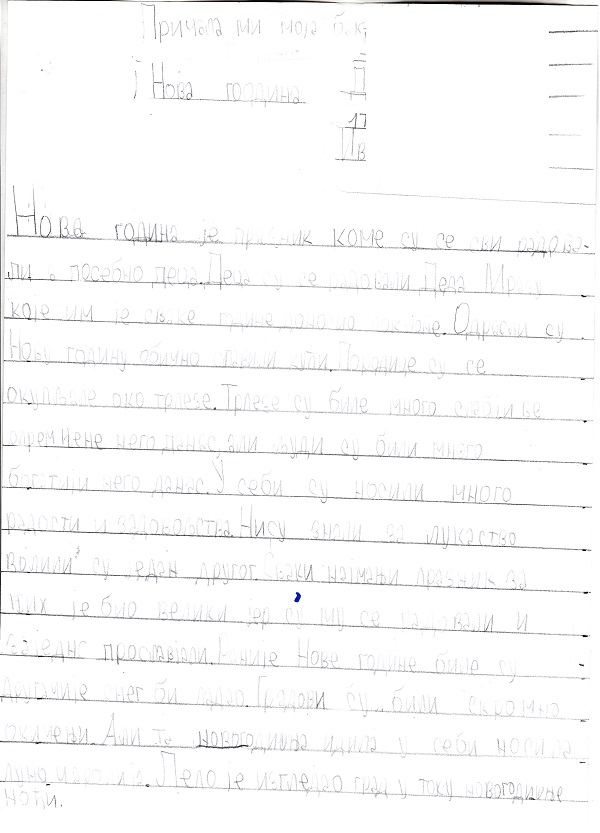 Причала ми моја бак
Нова година
П
17
Ив
Нова година је празник коме су се сви радова-
ли а посебно деца. Деца су се радовали Деда Мразу
које им је сваке године доносио поклоне. Одрасли су
Нову годину обично славили кући. Породице су се
окупљале око трпезе. Трпезе су биле много
спремнене него данас, али људи су били много
богатији него данас. У себи су носили много
радости и задовољства. Нису знали за лукаство
волили су један другог. Сваки најмањи празник за
њих је био велики јер су му се радовали и
заједнс прославјали. Раније Нове године биле су
другачије снег би падао. Градови су били скромно
окићени. Али та новогодишња идила у себи носила
пуно Лепо је изгледао град у току новогодишње
ноћи.